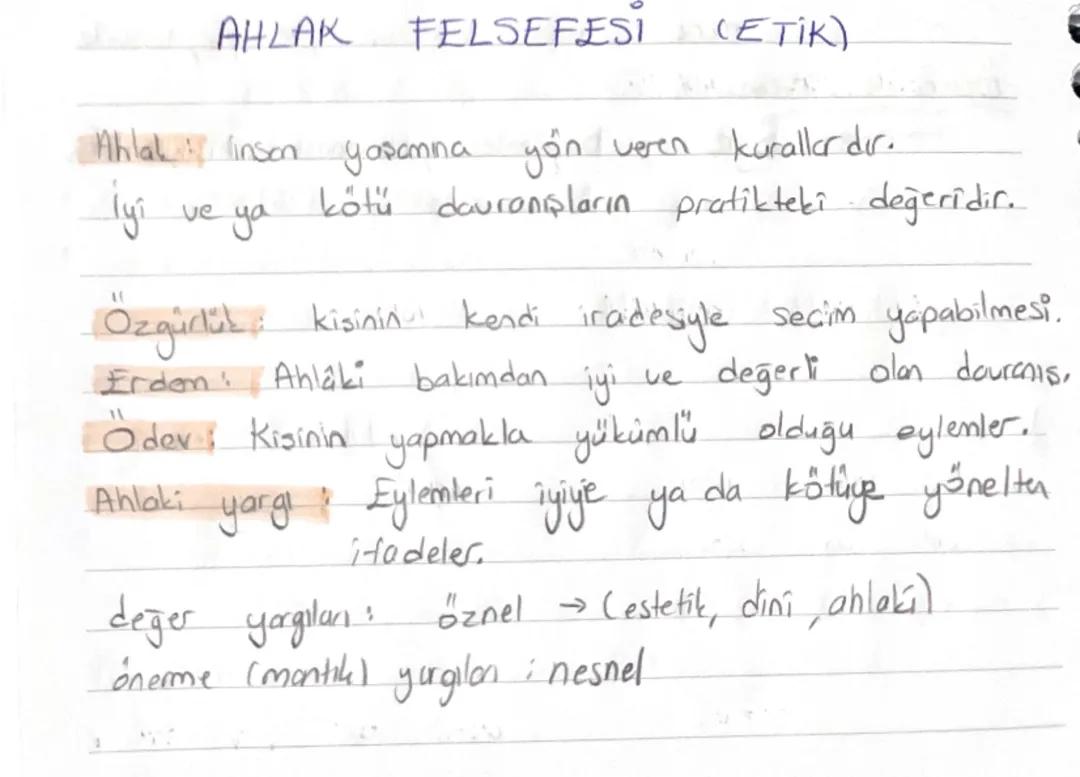 AHLAK FELSEFESİ (ETİK)
Ahlak : insan yaşamına yön veren kurallardır.
İyi ve ya kötü davranışların pratikteki değeridir.
Özgürlük : kişinin kendi iradesiyle seçim yapabilmesi.
Erdem : Ahlâki bakımdan iyi ve değerli olan davranış.
Ödev : Kişinin yapmakla yükümlü olduğu eylemler.
Ahlaki yargı : Eylemleri iyiye ya da kötüye yönelten
ifadeler.
değer yargıları : öznel → (estetik, dini, ahlaki)
önerme (mantık) yargıları : nesnel